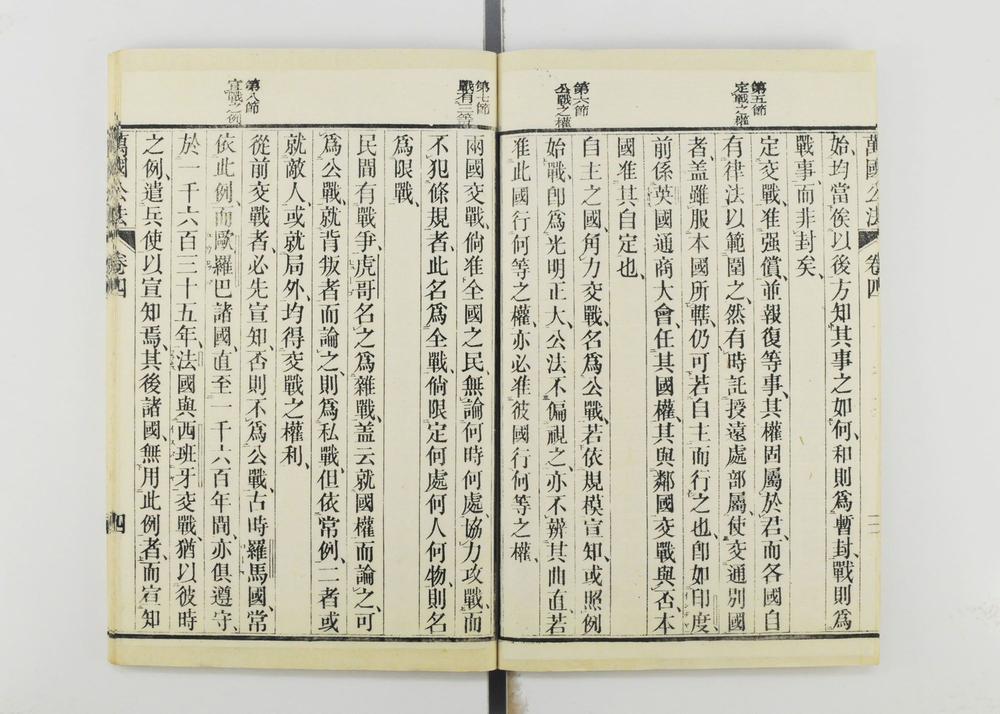 萬國公法 卷四
始、均當俟以後方知其事之如何、和則爲暫封、戰則爲
戰事、而非封矣、
第五節
定戰之權
定交戰、准强償、並報復等事、其權固屬於君、而各國自
有律法以範圍之、然有時託授遠處部屬、使交通別國
者、盖雖服本國所轄、仍可若自主而行之也、卽如印度、
前係英國通商大會、任其國權、其與鄰國交戰與否、本
國准其自定也、
第六節
公戰之權
自主之國、角力交戰、名爲公戰、若依規模宣知、或照例
始戰、卽爲光明正大、公法不偏視之、亦不辨其曲直、若
准此國行何等之權、亦必准彼國行何等之權、
第七節
戰有三等
兩國交戰、倘准全國之民、無論何時何處、協力攻戰、而
不犯條規者、此名爲全戰、倘限定何處何人何物、則名
爲限戰、
民間有戰爭、虎哥名之爲雜戰、盖云就國權而論之、可
爲公戰、就背叛者而論之、則爲私戰、但依常例、二者或
就敵人、或就局外、均得交戰之權利、
第八節
宣戰之例
從前交戰者、必先宣知、否則不爲公戰、古時羅馬國、常
依此例、而歐羅巴諸國、直至一千六百年間、亦俱遵守、
於一千六百三十五年、法國與西班牙交戰、猶以彼時
之例、遣兵使以宣知焉、其後諸國、無用此例者、而宣知
萬國公法 卷四 四